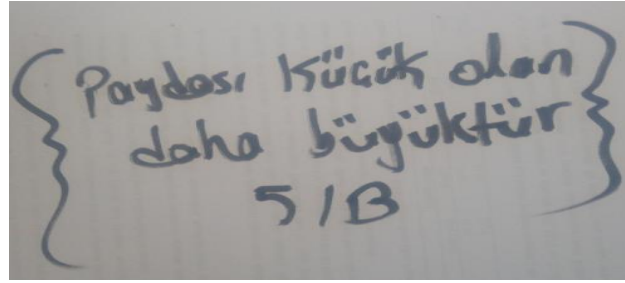 Paydası küçük olan
daha büyüktür
5/B